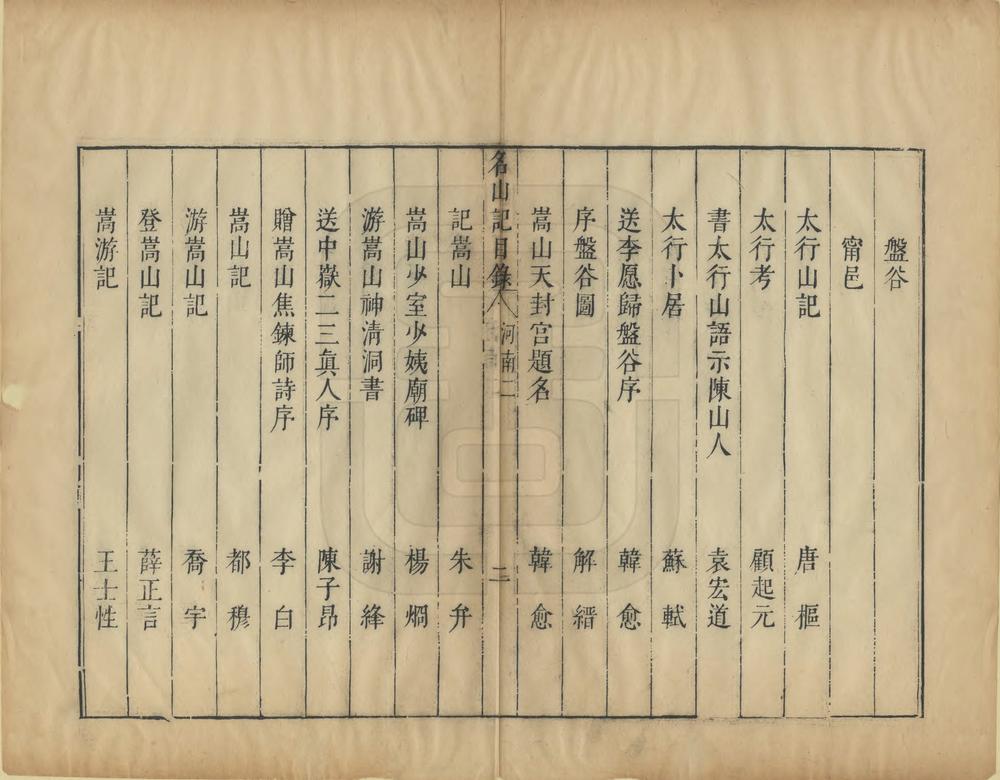 盤谷
甯邑
太行山記 唐樞
太行考 顧起元
書太行山語示陳山人 袁宏道
太行卜居 蘇軾
送李愿歸盤谷序 韓愈
序盤谷圖 解縉
嵩山天封宮題名 韓愈
名山記目錄 河南二 二
記嵩山 朱弁
嵩山少室少姨廟碑 楊烱
游嵩山神清洞書 謝絳
送中嶽二三眞人序 陳子昂
贈嵩山焦鍊師詩序 李白
嵩山記 都穆
游嵩山記 喬宇
登嵩山記 薛正言
嵩游記 王士性